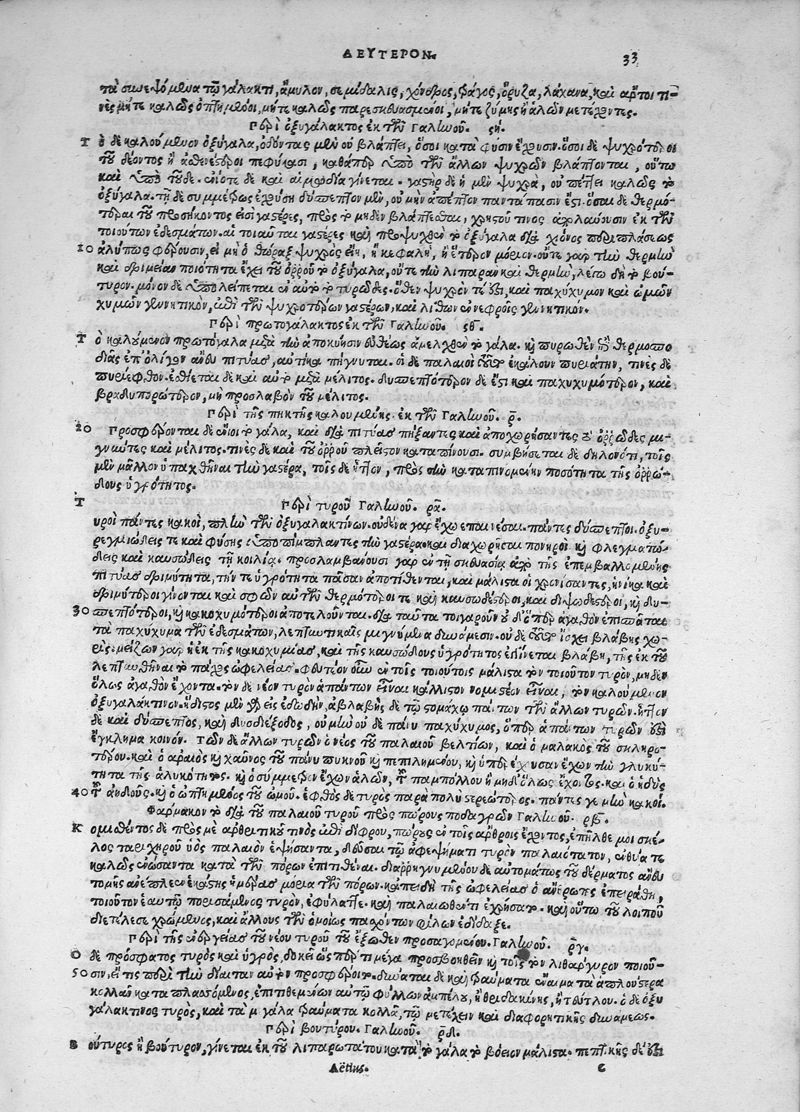 ΔΕΥΤΕΡΟΝ. 33
τὰ συνεψόμενα τῷ γάλακτι, ἄμυλον, σεμίδαλις, χόνδρος, φάγος, ὄρυζα, λάχανα, καὶ ἄρτοι τι-
νὲς μήτε καλῶς ὀπτημένοι, μήτε καλῶς παρεσκευασμένοι, μήτε ζύμης ἢ ἁλῶν μετέχοντες.
Περὶ ὀξυγάλακτος ἐκ τῶν Γαληνοῦ. ϟη.
Τὸ δὲ καλούμενον ὀξύγαλα, ὀδόντας μὲν οὐ βλάπτει, ὅσοι κατὰ φύσιν ἔχουσιν. ὅσοι δὲ ψυχρότεροι
τοῦ δέοντος ἢ ἀσθενέστεροι πεφύκασι, καθάπερ ὑπὸ τῶν ἄλλων ψυχρῶν βλάπτονται, οὕτω
καὶ ὑπὸ τοῦδε. ἐνίοτε δὲ καὶ αἱμωδία γίνεται. γαστὴρ δὲ ἡ μὲν ψυχρὰ, οὐ πέττει καλῶς τὸ
ὀξύγαλα. τῇ δὲ συμμέτρως ἐχούσῃ δύσπεπτον μὲν, οὐ μὴν ἄπεπτον παντάπασίν ἐστι. ὅσαι δὲ θερμό-
τεραι τοῦ προσήκοντος εἰσὶ γαστέρες, πρὸς τὸ μηδὲν βλάπτεσθαι, χρηστοῦ τινος ἀπολαύουσιν ἐκ τῶν
τοιούτων ἐδεσμάτων. αἱ τοιαῦται γαστέρες καὶ προεψυχθὲν τὸ ὀξύγαλα διὰ χιόνος περιπλάσεως
10 ἀλύπως φέρουσιν, εἰ μὴ ὁ θώραξ ψυχρὸς εἴη, ἢ κεφαλὴ, ἢ ἕτερον μόριον. οὔτε γὰρ τὴν θερμὴν
καὶ δριμεῖαν ποιότητα ἔχει τοῦ ὀρροῦ τὸ ὀξύγαλα, οὔτε τὴν λιπαρὰν καὶ θερμὴν, λέγω δὴ τὸ βού-
τυρον. μόνον δὲ ὑπολείπεται ἐν αὐτῷ τὸ τυρῶδες. ὅθεν ψυχρόν τέ ἐστι, καὶ παχύχυμον καὶ ὠμῶν
χυμῶν γεννητικὸν, ἐπὶ τῶν ψυχροτέρων γαστέρων, καὶ λίθων ἐν νεφροῖς γεννητικόν.
Περὶ πρωτογάλακτος ἐκ τῶν Γαληνοῦ. ϟθ.
Τὸ καλούμενον πρωτόγαλα μετὰ τὴν ἀποκύησιν εὐθέως ἀμελχθὲν τὸ γάλα. καὶ πυρωθὲν ἐπὶ θερμοσπο-
διᾶς ἐπ' ὀλίγον ἄνευ πιτύας, αὐτίκα πήγνυται. οἱ δὲ παλαιοὶ τοῦτο ἐκάλουν πυριάτην, τινὲς δὲ
πυρίεφθον. ἐσθίεται δὲ καὶ αὐτὸ μετὰ μέλιτος. δυσπεπτότερον δέ ἐστι καὶ παχυχυμότερον, καὶ
βραδυπορώτερον, μὴ προσλαβὸν τοῦ μέλιτος.
Περὶ τῆς πηκτῆς καλουμένης ἐκ τῶν Γαληνοῦ. ρ.
20 Προσφέρονται δὲ ἔνιοι τὸ γάλα, καὶ διὰ πιτύας πήξαντες καὶ ἀποχωρήσαντες τὸ ὀρρῶδες μι-
γνύντες καὶ μέλιτος. τινὲς δὲ καὶ τοῦ ὀρροῦ πλεῖστον καταπίνουσι. συμβήσεται δὲ δηλονότι, τοῖς
μὲν μᾶλλον ὑπαχθῆναι τὴν γαστέρα, τοῖς δὲ ἧττον, πρὸς τὴν καταπινομένην ποσότητα τῆς ὀρρώ-
δους ὑγρότητος.
Περὶ τυροῦ Γαληνοῦ. ρα.
Τυροὶ πάντες κακοὶ, πλὴν τῶν ὀξυγαλακτίνων. οὐδένα γὰρ ἔχω ἐπαινέσαι. πάντες δύσπεπτοι. ὀξυ-
ρεγμιώδεις τε καὶ φύσης ὑποπιμπλάντες τὴν γαστέρα. καὶ διαχωρῆσαι πονηροὶ καὶ φλεγματώ-
δεις καὶ καυσώδεις τῇ κοιλίᾳ. προσλαμβάνουσι γὰρ ἐν τῇ σκευασίᾳ ἀπὸ τῆς ἐπεμβαλλομένης
πιτύας δριμύτητα, τήν τε ὑγρότητα πᾶσαν ἀποτίθενται, καὶ μάλιστα οἱ χρονίσαντες, ἡνίκα καὶ
δριμύτεροι γίνονται σφῶν αὐτῶν θερμότεροί τε καὶ καυσωδέστεροι, καὶ διψωδέστεροι, καὶ δυ-
30 σπεπτότεροι, καὶ κακοχυμότεροι ἀποτελοῦνται. διὰ ταῦτα τοιγαροῦν οὐδ' ὅπερ ἀγαθὸν ἐπισπᾶται
τὰ παχύχυμα τῶν ἐδεσμάτων, λεπτυντικαῖς μιγνύμενα δυνάμεσιν. οὐδὲ τοῦτο ἴσχει βλάβης χω-
ρίς. μείζων γὰρ ἡ ἐκ τῆς κακοχυμίας, καὶ τῆς καυσώδους ὑγρότητος ἐπιγίνεται βλάβη, τῆς ἐκ τοῦ
λεπτυνθῆναι τὸ πάχος ὠφελείας. φευκτέον οὖν ἐν τοῖς τοιούτοις μάλιστα τὸν τοιοῦτον τυρὸν, μηδὲν
ὅλως ἀγαθὸν ἔχοντα. τὸν δὲ νέον τυρὸν ἁπάντων εἶναι κάλλιστον νομιστέον εἶναι, τὸν καλούμενον
ὀξυγαλάκτινον. ἥδιστος μὲν γὰρ εἰς ἐδωδὴν, ἀβλαβὴς δὲ τῷ στομάχῳ πάντων τῶν ἄλλων τυρῶν. ἧττον
δὲ καὶ δύσπεπτος, καὶ δυσδιέξοδος, οὐ μὴν οὐδὲ πάνυ παχύχυμος, ὅπερ ἁπάντων τυρῶν ἐστὶ
ἔγκλημα κοινόν. Τῶν δὲ ἄλλων τυρῶν ὁ νέος τοῦ παλαιοῦ βελτίων, καὶ ὁ μαλακὸς τοῦ σκληρο-
τέρου. καὶ ὁ ἀραιὸς καὶ χαῦνος τοῦ πάνυ πυκνοῦ καὶ πεπιλημένου, καὶ ὑπερέχουσαν ἔχων τὴν γλυκύ-
τητα τῆς ἁλυκότητος. καὶ ὁ σύμμετρον ἔχων ἁλῶν, τοῦ παμπόλλου ἢ μηδ' ὅλως ἔχοντος. καὶ ὁ ἡδὺς
40 τοῦ ἀηδοῦς. καὶ ὁ ὀπτημένος τοῦ ὠμοῦ. ἑφθὸς δὲ τυρὸς παραπολὺ στερεώτερος. πάντες γε μὴν κακοί.
Φάρμακον τὸ διὰ τοῦ παλαιοῦ τυροῦ πρὸς πώρους ποδαγρῶν Γαληνοῦ. ρβ.
Κομισθέντος δὲ πρὸς μὲ ἀρθριτικοῦ τινὸς ἐπὶ δίφρου, πώρους ἐν τοῖς ἄρθροις ἔχοντος, ἐπῆλθέ μοι σκέ-
λος ταριχηροῦ ὑὸς παλαιὸν ἑψήσαντα, δεῦσαι τῷ ἀφεψήματι τυρὸν παλαιότατον, εὐθύς τε
καλῶς ἑνώσαντα κατὰ τῶν πώρων ἐπιτιθέναι. διαρρηγνυμένου δὲ αὐτομάτως τοῦ δέρματος ἄνευ
τομῆς ἀνέπλεεν ἑκάστης ἡμέρας μόρια τῶν πώρων. καὶ ἐπειδὴ τῆς ὠφελείας ὁ ἄνθρωπος ἐπειράθη,
τοιοῦτον ἑαυτῷ ποιησάμενος τυρὸν, ἐφύλαττε. καὶ παλαιωθέντι ἐχρῆσατο. καὶ οὕτω τοῦ λοιποῦ
διετέλεσε χρώμενος, καὶ ἄλλους τῶν ὁμοίως πασχόντων φίλων ἐδίδαξε.
Περὶ τῆς ἐνεργείας τοῦ νέου τυροῦ τοῦ ἔξωθεν προσαγομένου. Γαληνοῦ. ργ.
Ὁ δὲ πρόσφατος τυρὸς καὶ ὑγρὸς, δοκεῖ ὥσπερ τι μέγα προσβοηθεῖν καὶ τοῖς τὸν λιθάργυρον πιοῦ-
50 σιν, εἴ τις περὶ τὴν δίαιταν αὐτὸν προσφέροι. δύναται δὲ καὶ τραύματα ἔναιμα τὰ ἁπλούστερα
κολλᾶν καταπλασσόμενος, ἐπιτιθεμένων αὐτῷ φύλλων ἀμπέλου, ἢ θριδακίνης, ἢ τεύτλου. ὁ δὲ ὀξυ-
γαλάκτινος τυρὸς, καὶ τὰ μεγάλα τραύματα κολλᾷ, τῷ μετέχειν καὶ διαφορητικῆς δυνάμεως.
Περὶ βουτύρου. Γαληνοῦ. ρδ.
Βούτυρος ἢ βούτυρον, γίνεται ἐκ τοῦ λιπαρωτάτου κατὰ τὸ γάλα τὸ βόειον μάλιστα. πεπτικῆς δέ ἐστι
Aëtius. e